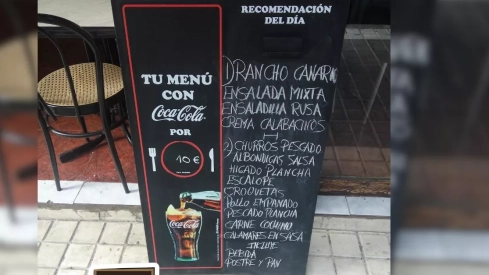 RECOMENDACIÓN
DEL DÍA
TU MENÚ
CON
Coca-Cola
POR
10 €
Coca-Cola
1) RANCHO CANARIO
ENSALADA MIXTA
ENSALADILLA RUSA
CREMA CALABACINOS
2) CHURROS PESCADO
ALBONDIGAS SALSA
HIGADO PLANCHA
ESCALOPE
CROQUETAS
POLLO EMPANADO
PESCADO PLANCHA
CARNE COCHINO
CALAMARES EN SALSA
INCLUYE
BEBIDA
POSTRE Y PAN